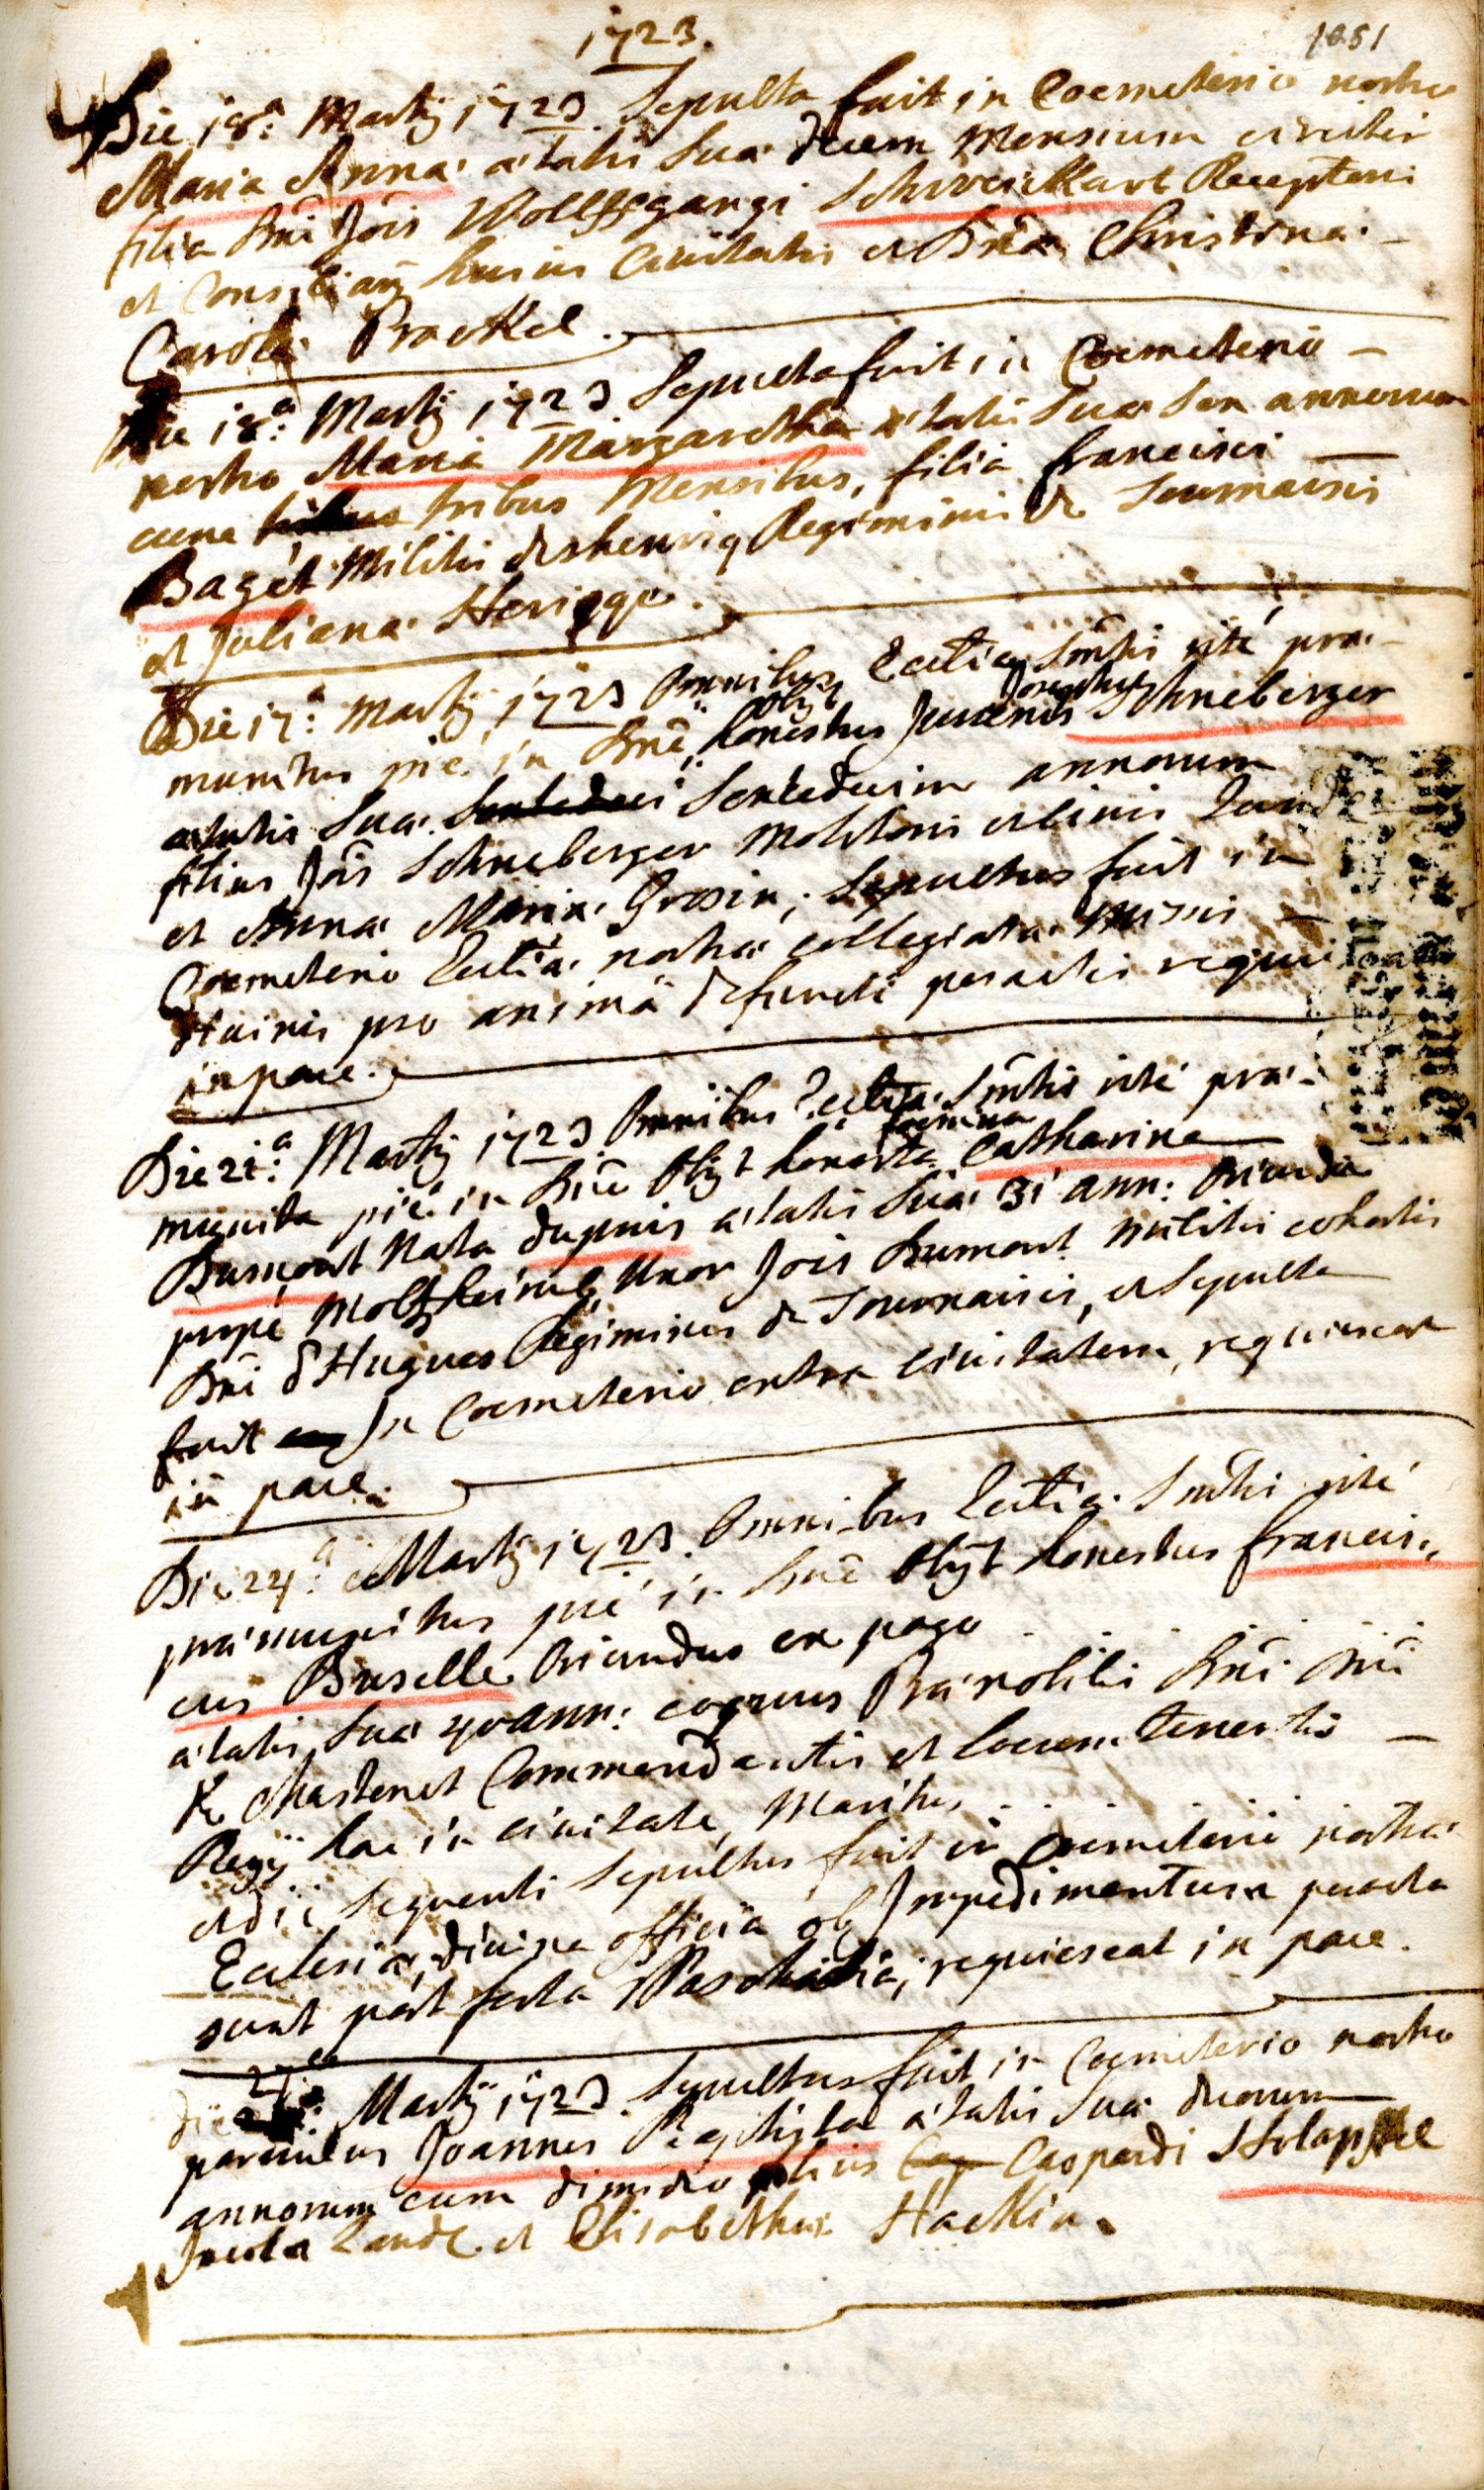 1723.
1051
Die 18ª Martij 1723 Sepulta fuit in Coemeterio nostro
Maria Anna ætatis suæ decem mensium circiter
filia Dni Jois Wolffgangi Schweickart Receptoris
et Consiliarij huius Civitatis et Dnæ Christinæ
Carolæ Prackel.
Die 18ª Martij 1723 Sepulta fuit in Coemeterio
nostro Maria Margaretha ætatis suæ sex annorum
cum tribus Mensibus, filia francisci
Baget Militis Regiminis de Tournaisis
et Julianæ
Die 17ª Martij 1723 Omnibus Eccliæ Smtis rité præ-
munitus pié in Dno obijt honestus Juvenis Josephus Schneberger
ætatis suæ Sextedecim annorum
filius Jois Schneberger Molitoris et civis
et Anna Maria Grosin; Sepultus fuit in
Coemeterio Eccliæ nostræ collegiatæ Missis
divinis pro anima defuncti peractis requiescat
in pace.
Die 21ª Martij 1723 Omnibus Eccliæ Smtis rité præ-
munita pié in Dno Obijt honesta foemina Catharina
Dumont Nata dupuis ætatis suæ 31 ann: Oriunda
propé Moltzheimb, Uxor Jois Dumont militis cohortis
Dni d'Hugues Regiminis de Tournaisis, et Sepulta
fuit In Coemeterio extra Civitatem, requiescat
in pace.
Die 24ª Martij 1723. Omnibus Eccliæ Smtis rité
præmunitus pié in Dno Obijt honestus francis-
cus Buselle Oriundus ex pago
ætatis suæ 40 ann: coquus Prænobilis Dni Dni
de Chastenet Commendantis et locum tenentis
Regij hac in civitate, Maritus
et die sequenti Sepultus fuit in Coemeterio nostræ
Ecclesiæ, divina officia ob Impedimentum peracta
sunt post festa Paschalia; requiescat in pace.
die 27ª Martij 1723 Sepultus fuit in Coemeterio nostro
parvulus Joannes Baptista ætatis suæ duorum
annorum cum dimidio filius Caspardi
Incola Land. et Elisabethæ Hackin.